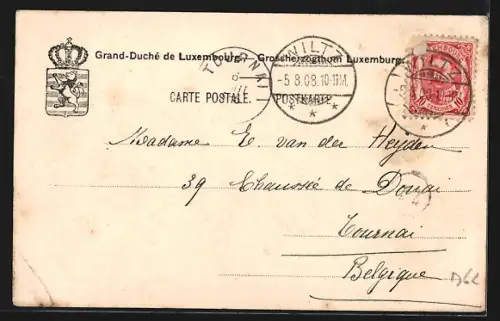 Grand-Duché de Luxembourg. Grossherzogthum Luxemburg.
TOURNAI
WILTZ
-5.8.08.10-11M.
WILTZ
10 10
CARTE POSTALE. POSTKARTE.
Madame E. van der Heyden
39 Chaussée de Douai
Tournai
Belgique